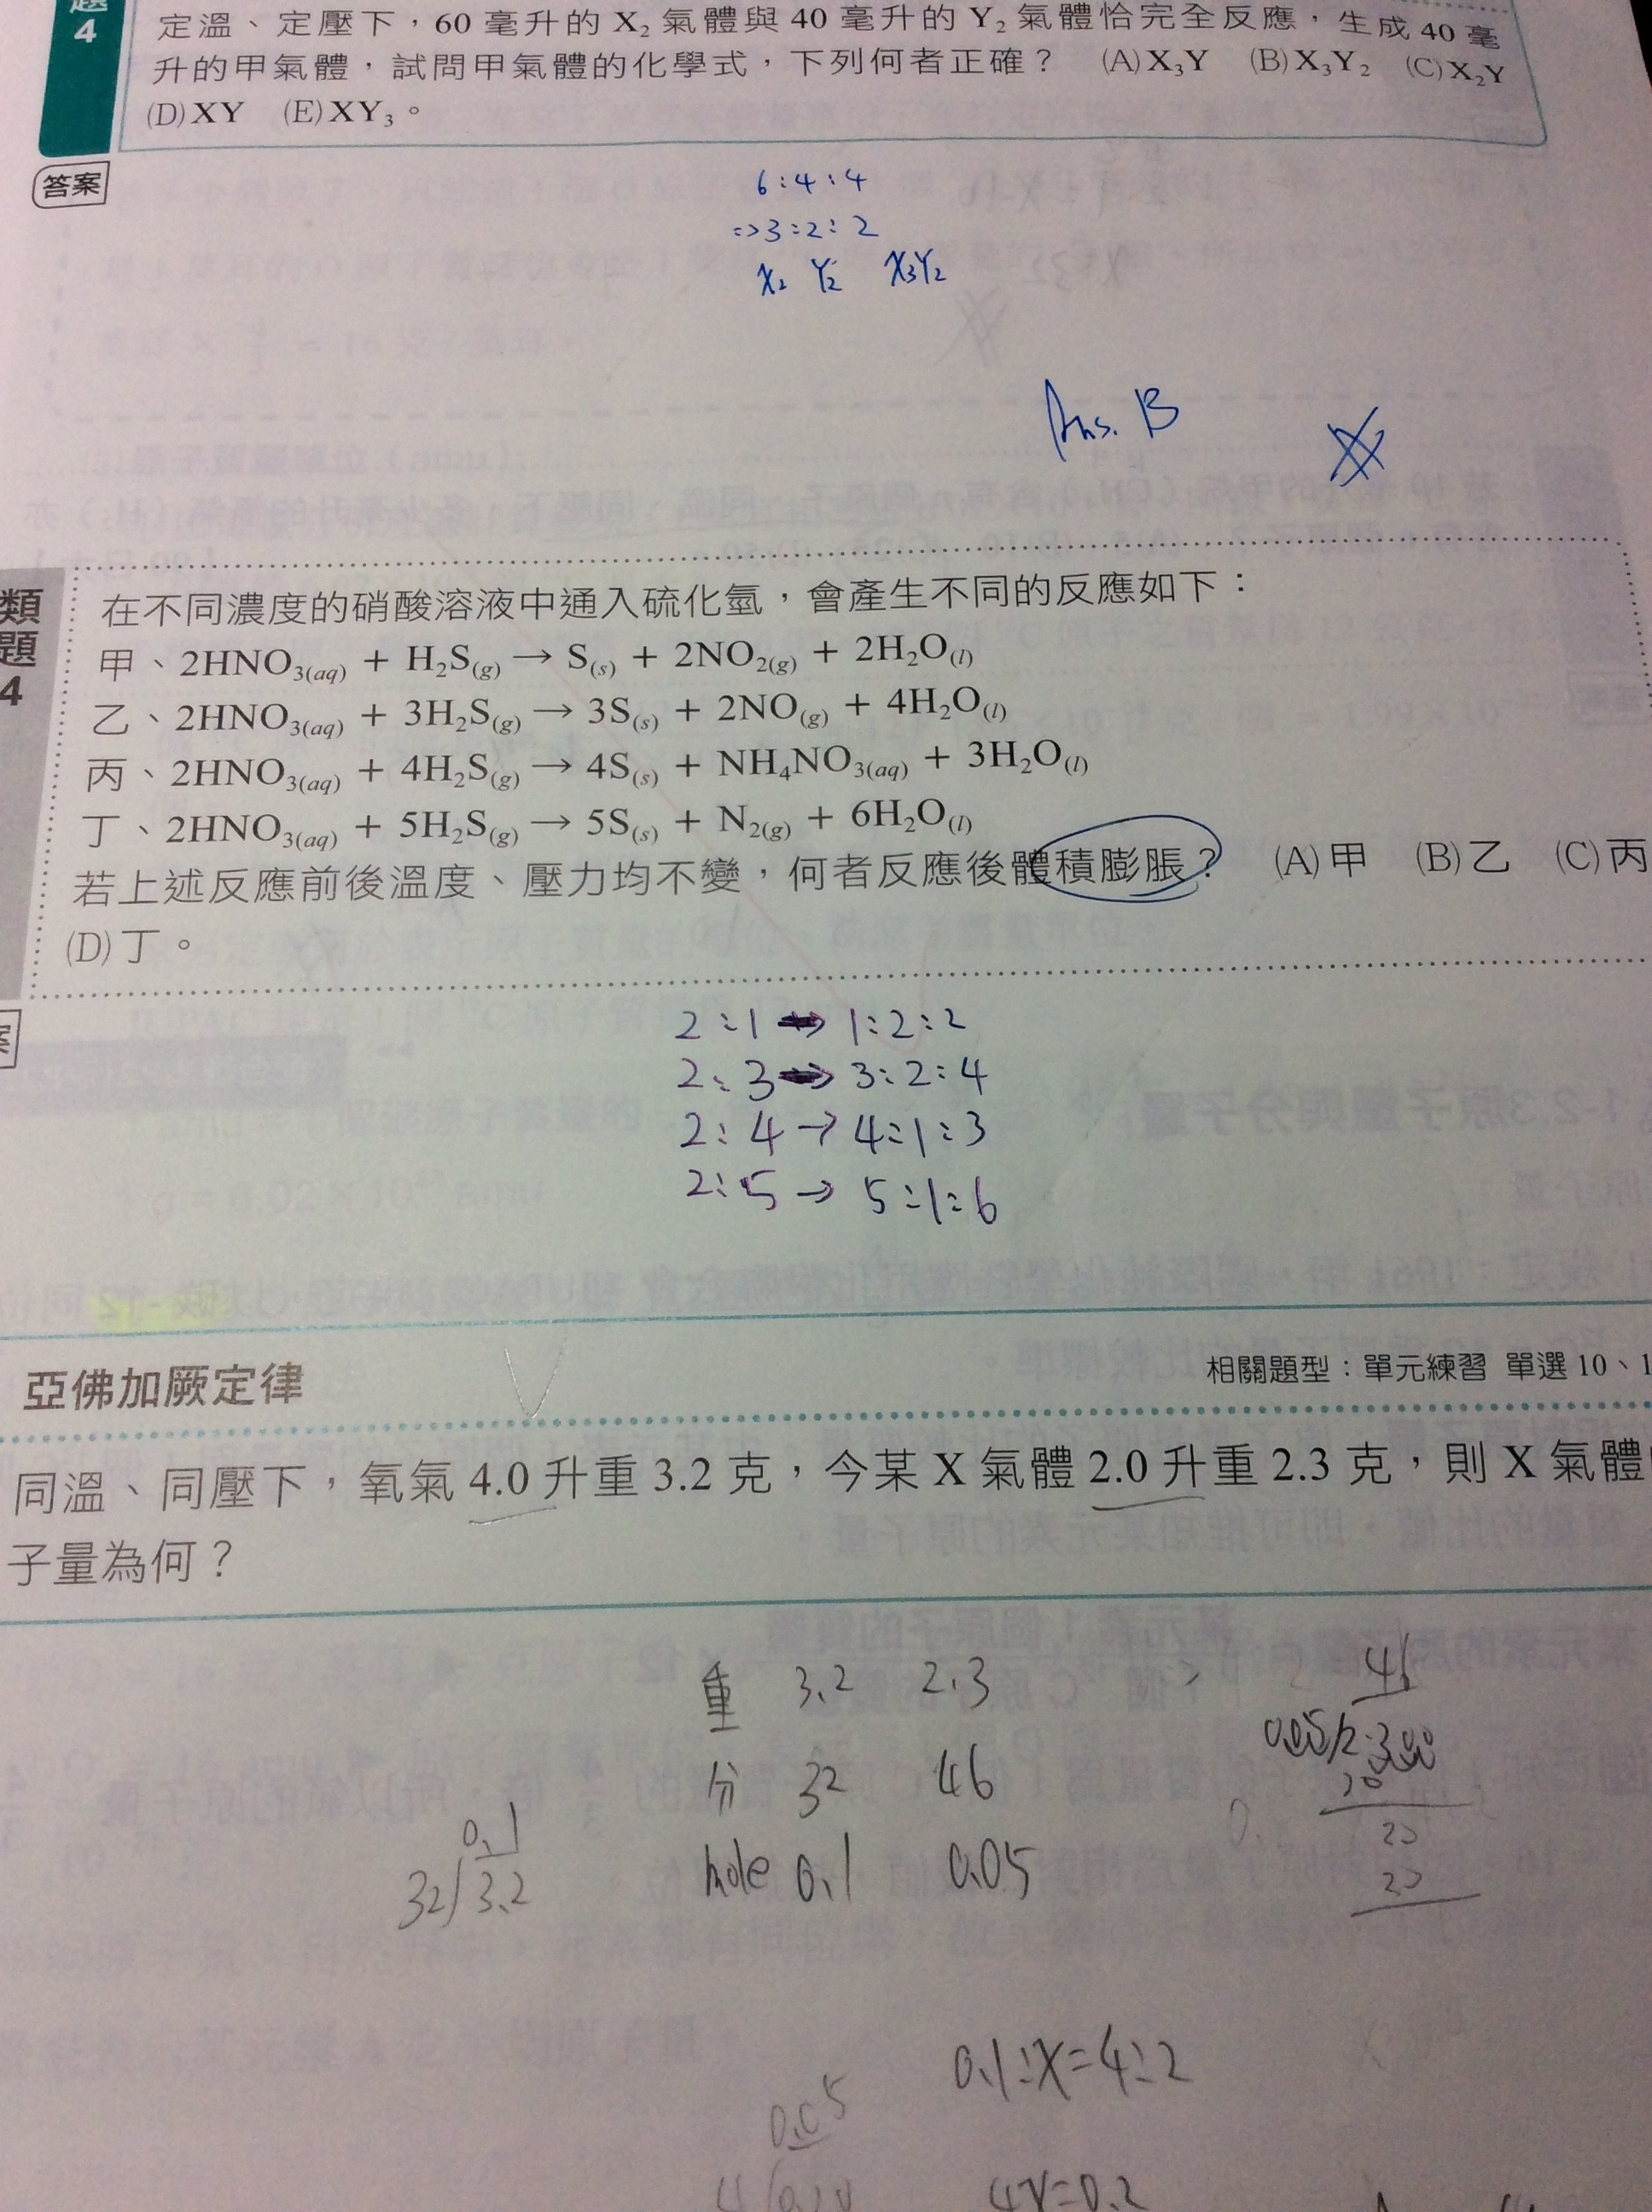 題
4
定溫、定壓下，60 毫升的 X₂ 氣體與 40 毫升的 Y₂ 氣體恰完全反應，生成 40 毫
升的甲氣體，試問甲氣體的化學式，下列何者正確？ (A)X₃Y (B)X₃Y₂ (C)X₂Y
(D)XY (E)XY₃。
答案
6:4:4
=>3:2:2
X₂ Y₂ X₃Y₂
Ans. B
類題4
在不同濃度的硝酸溶液中通入硫化氫，會產生不同的反應如下：
甲、2HNO₃(aq) + H₂S(g) → S(s) + 2NO₂(g) + 2H₂O(l)
乙、2HNO₃(aq) + 3H₂S(g) → 3S(s) + 2NO(g) + 4H₂O(l)
丙、2HNO₃(aq) + 4H₂S(g) → 4S(s) + NH₄NO₃(aq) + 3H₂O(l)
丁、2HNO₃(aq) + 5H₂S(g) → 5S(s) + N₂(g) + 6H₂O(l)
若上述反應前後溫度、壓力均不變，何者反應後體積膨脹？ (A)甲 (B)乙 (C)丙
(D)丁。
案
2:1 → 1:2:2
2:3 → 3:2:4
2:4 → 4:1:3
2:5 → 5:1:6
亞佛加厥定律
相關題型：單元練習 單選 10、1
同溫、同壓下，氧氣 4.0 升重 3.2 克，今某 X 氣體 2.0 升重 2.3 克，則 X 氣體
子量為何？
重 3.2 2.3
分 32 46
mole 0.1 0.05
0.1
32/3.2
46
0.05/2.300
20
0.1:X=4:2
0.05
4X=0.2